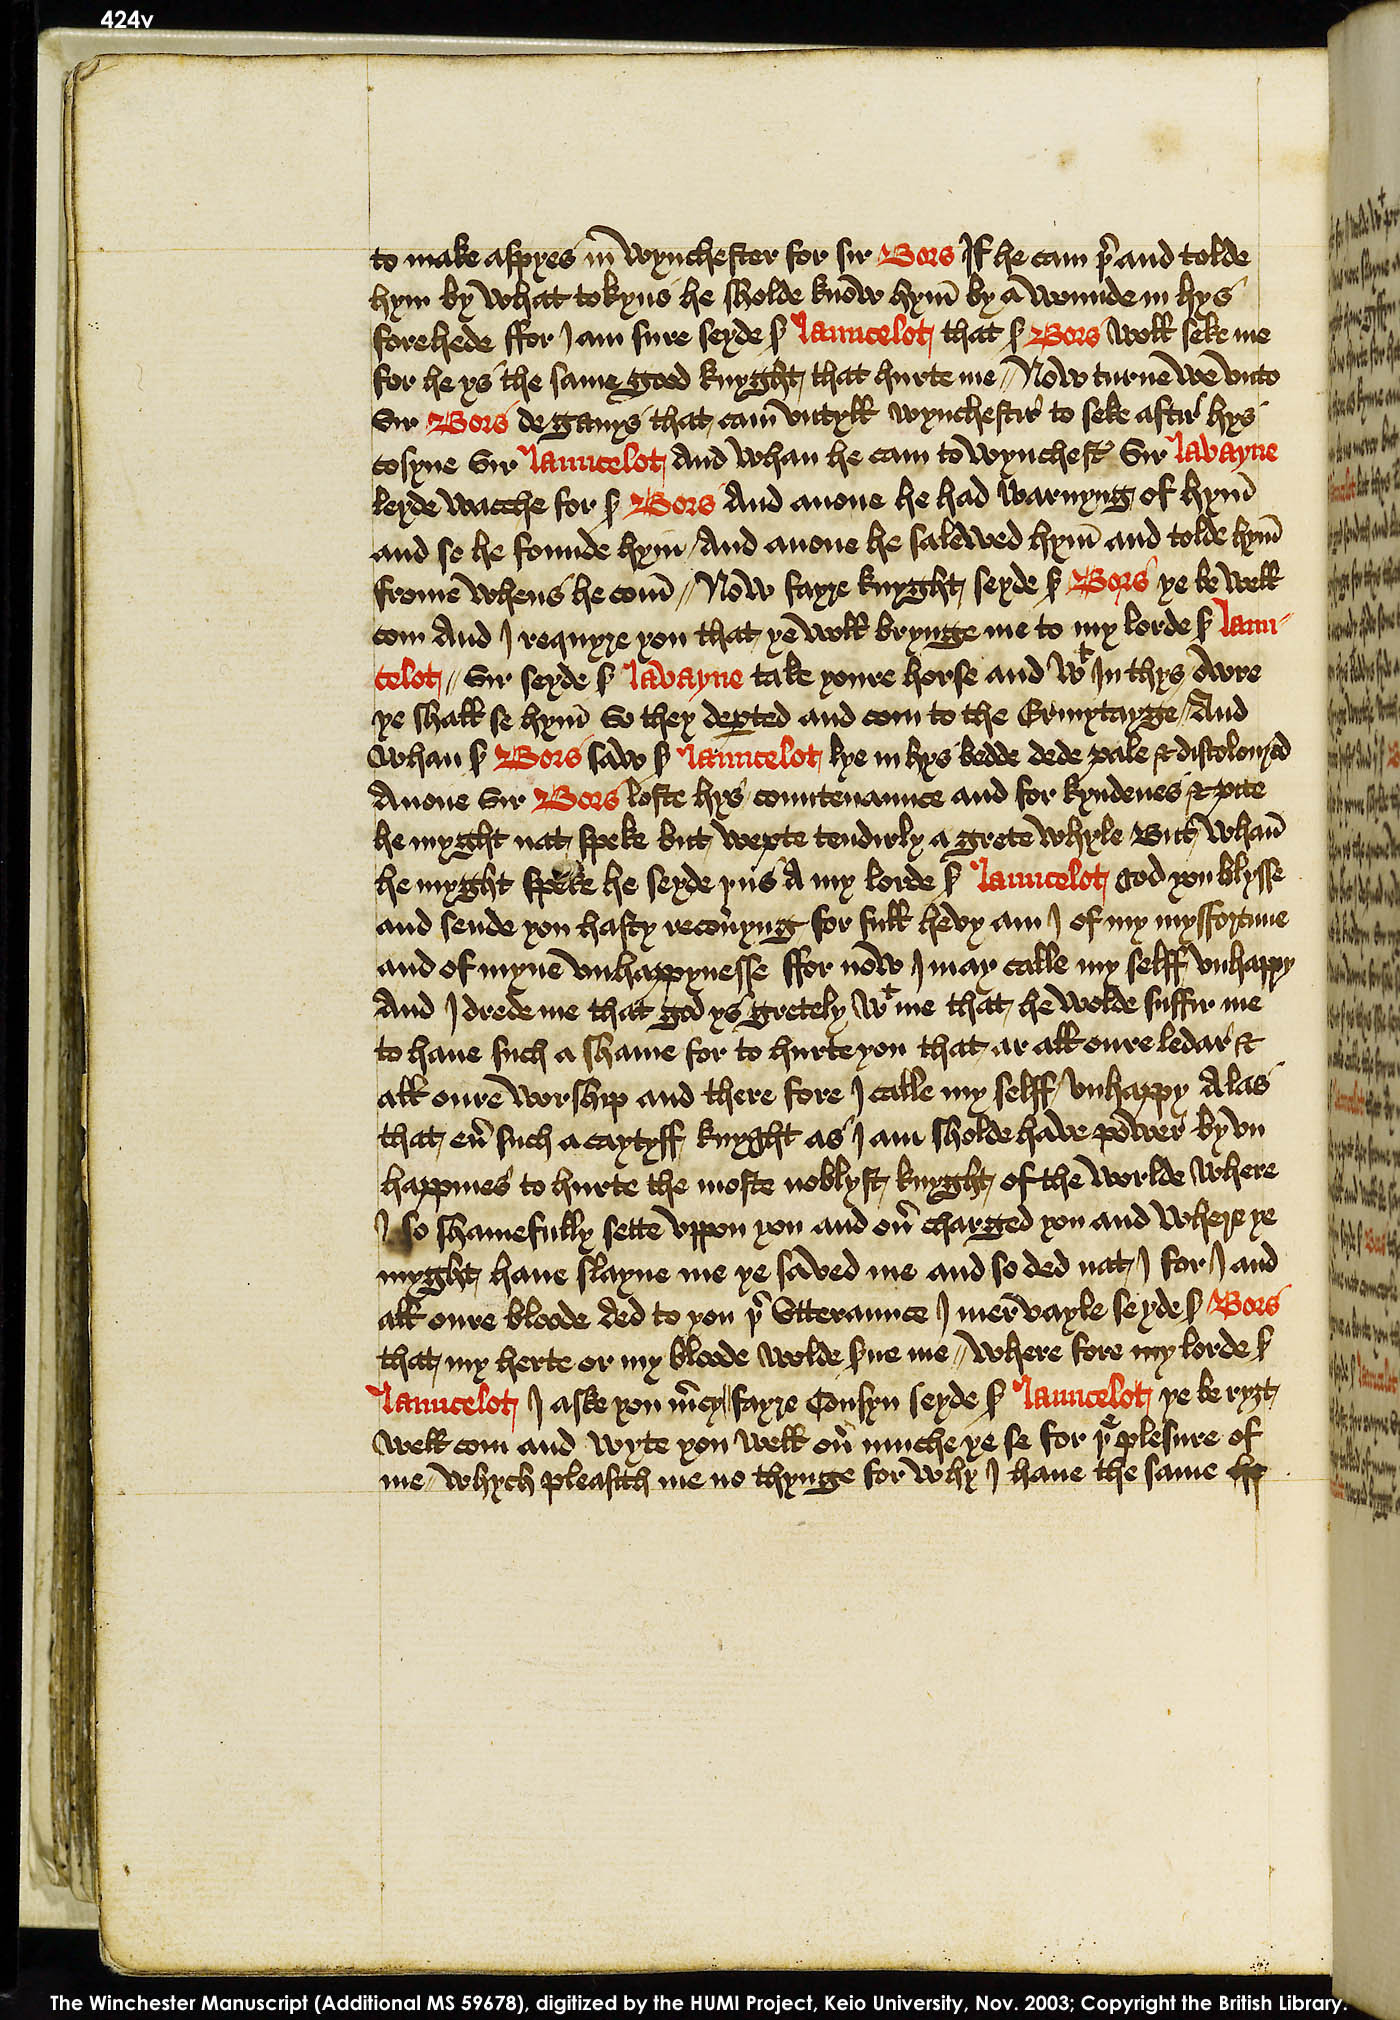 424v
to make aspyes in Wynchester for sir Bors If he cam þr and tolde
hym by what tokyns he sholde know hym by a wounde in hys
forehede ffor I am sure seyde sir Launcelot that sir Bors woll seke me
for he ys the same good knyght that hurte me // Now turne we unto
Sir Bors de ganys that cam untyll wynchestir to seke aftir hys
cosyne Sir Launcelot And whan he cam to Wynchestr Sir Lavayne
leyde wacche for sir Bors And anone he had warnyng of hym
and so he founde hym / And anone he salewed hym and tolde hym
frome whens he com // Now fayre knyght seyde sir Bors ye be well
com And I requyre you that ye woll brynge me to my lorde sir Laun-
celot // Sir seyde sir Lavayne take youre horse and wt In thys owre
ye shall se hym So they depted and com to the Ermytayge / And
whan sir Bors saw sir Launcelot lye in hys bedde dede pale & discoloured
Anone Sir Bors loste hys countenaunce and for kyndenes & pite
he myght nat speke but wepte tendirly a grete whyle But whan
he myght speke he seyde þus A my lorde sir Launcelot God you blysse
and sende you hasty recoveryng for full hevy am I of my mysfortune
and of myne unhappynesse ffor now I may calle my selff unhappy
And I drede me that god ys gretely wt me that he wolde suffir me
to have such a shame for to hurte you that ar all oure ledar &
all oure worship and there fore I calle my selff unhappy Alas
that ever such a caytyff knyght as I am sholde have power by un
happines to hurte the moste noblyst knyght of the worlde where
I so shamefully sette uppon you and over charged you and where ye
myght have slayne me ye saved me and so ded nat I for I and
all oure bloode ded to you þr Utteraunce I mervayle seyde sir Bors
that my herte or my bloode wolde serve me // Where fore my lorde sir
Launcelot I aske you mercy / fayre Cousyn seyde sir Launcelot ye be ryght
well com and wyte you well over muche ye se for þe plesure of
me whych pleasith me no thynge for why I have the same
The Winchester Manuscript (Additional MS 59678), digitized by the HUMI Project, Keio University, Nov. 2003; Copyright the British Library.